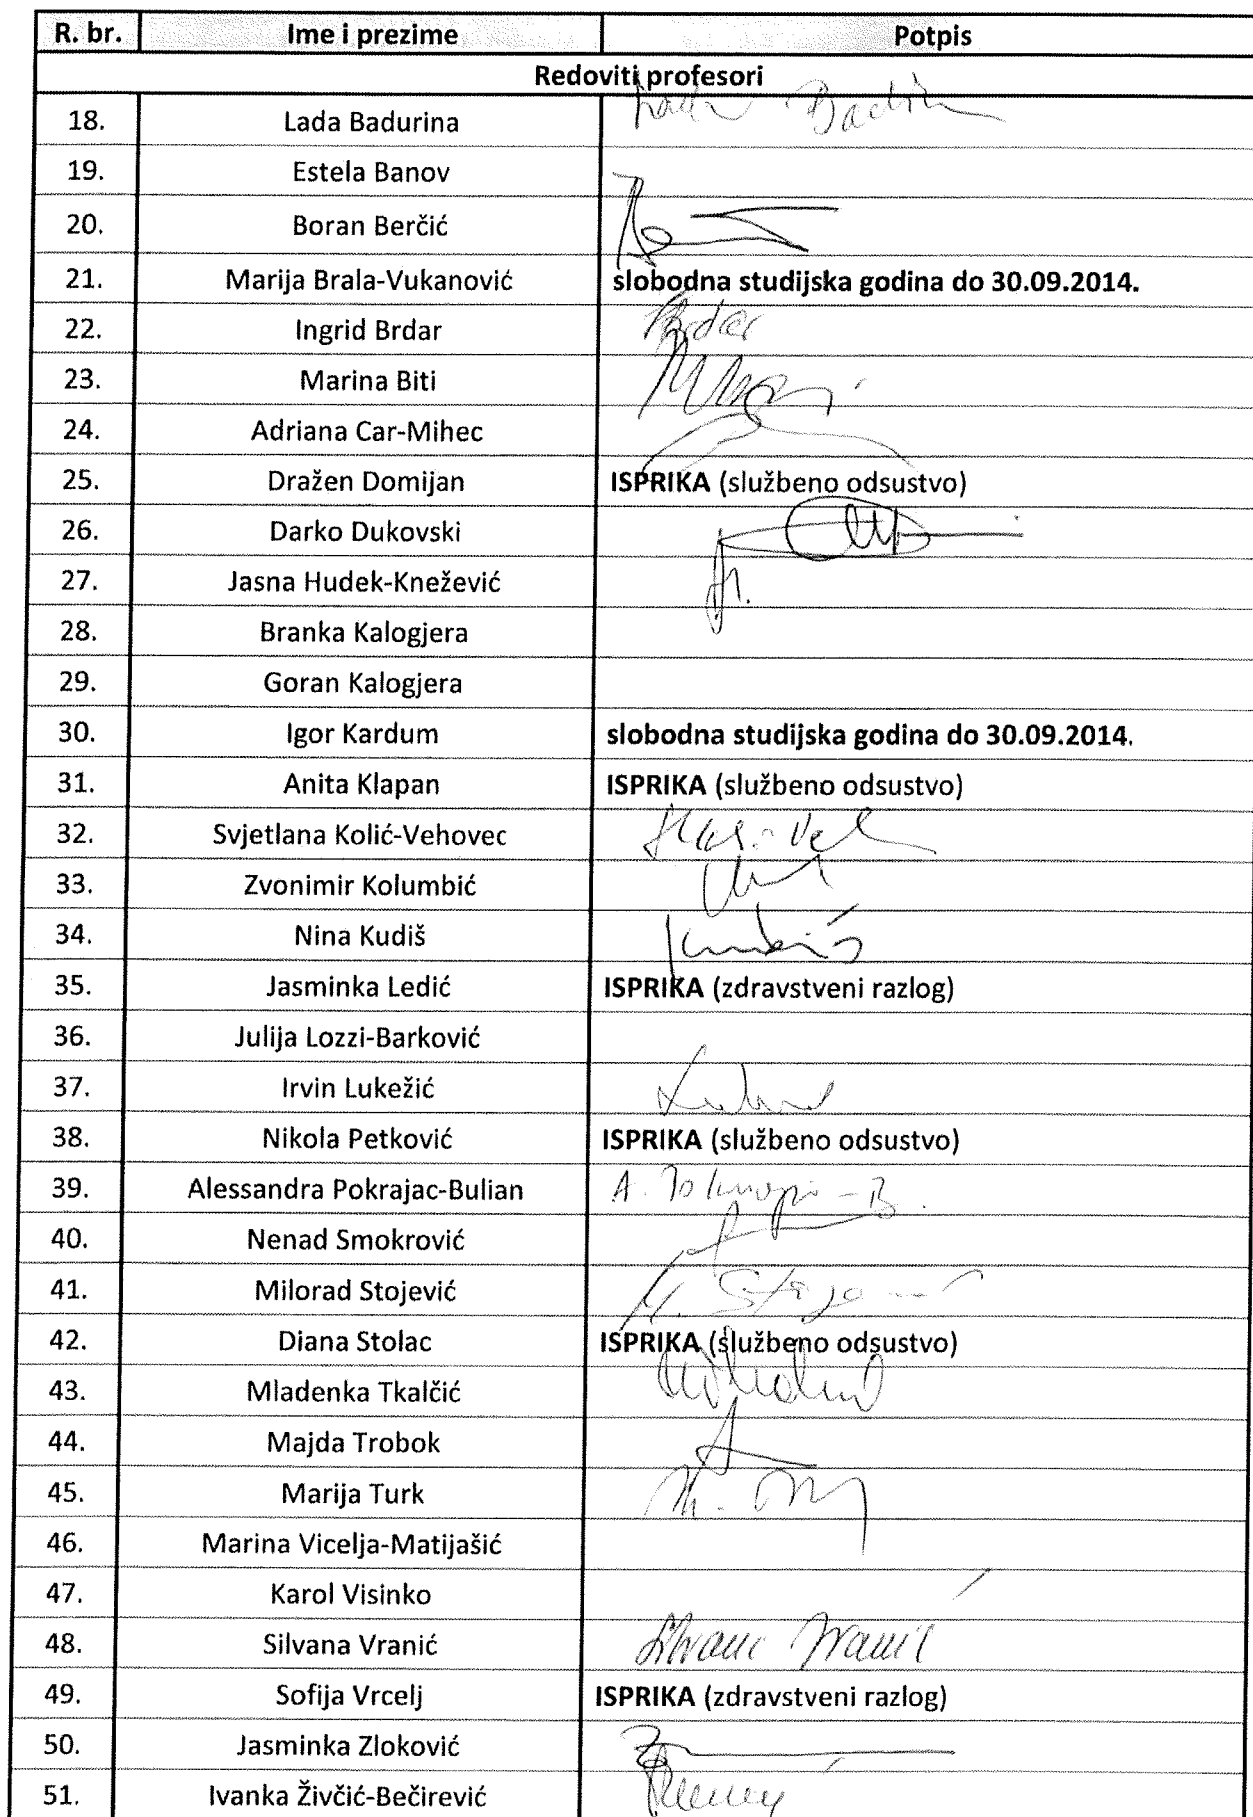 R. br. Ime i prezime Potpis
Redoviti profesori
18. Lada Badurina
19. Estela Banov
20. Boran Berčić
21. Marija Brala-Vukanović slobodna studijska godina do 30.09.2014.
22. Ingrid Brdar Brdar
23. Marina Biti
24. Adriana Car-Mihec
25. Dražen Domijan ISPRIKA (službeno odsustvo)
26. Darko Dukovski
27. Jasna Hudek-Knežević
28. Branka Kalogjera
29. Goran Kalogjera
30. Igor Kardum slobodna studijska godina do 30.09.2014.
31. Anita Klapan ISPRIKA (službeno odsustvo)
32. Svjetlana Kolić-Vehovec
33. Zvonimir Kolumbić
34. Nina Kudiš Kudiš
35. Jasminka Ledić ISPRIKA (zdravstveni razlog)
36. Julija Lozzi-Barković
37. Irvin Lukežić
38. Nikola Petković ISPRIKA (službeno odsustvo)
39. Alessandra Pokrajac-Bulian
40. Nenad Smokrović
41. Milorad Stojević
42. Diana Stolac ISPRIKA (službeno odsustvo)
43. Mladenka Tkalčić
44. Majda Trobok
45. Marija Turk
46. Marina Vicelja-Matijašić
47. Karol Visinko
48. Silvana Vranić Silvana Vranić
49. Sofija Vrcelj ISPRIKA (zdravstveni razlog)
50. Jasminka Zloković
51. Ivanka Živčić-Bečirević